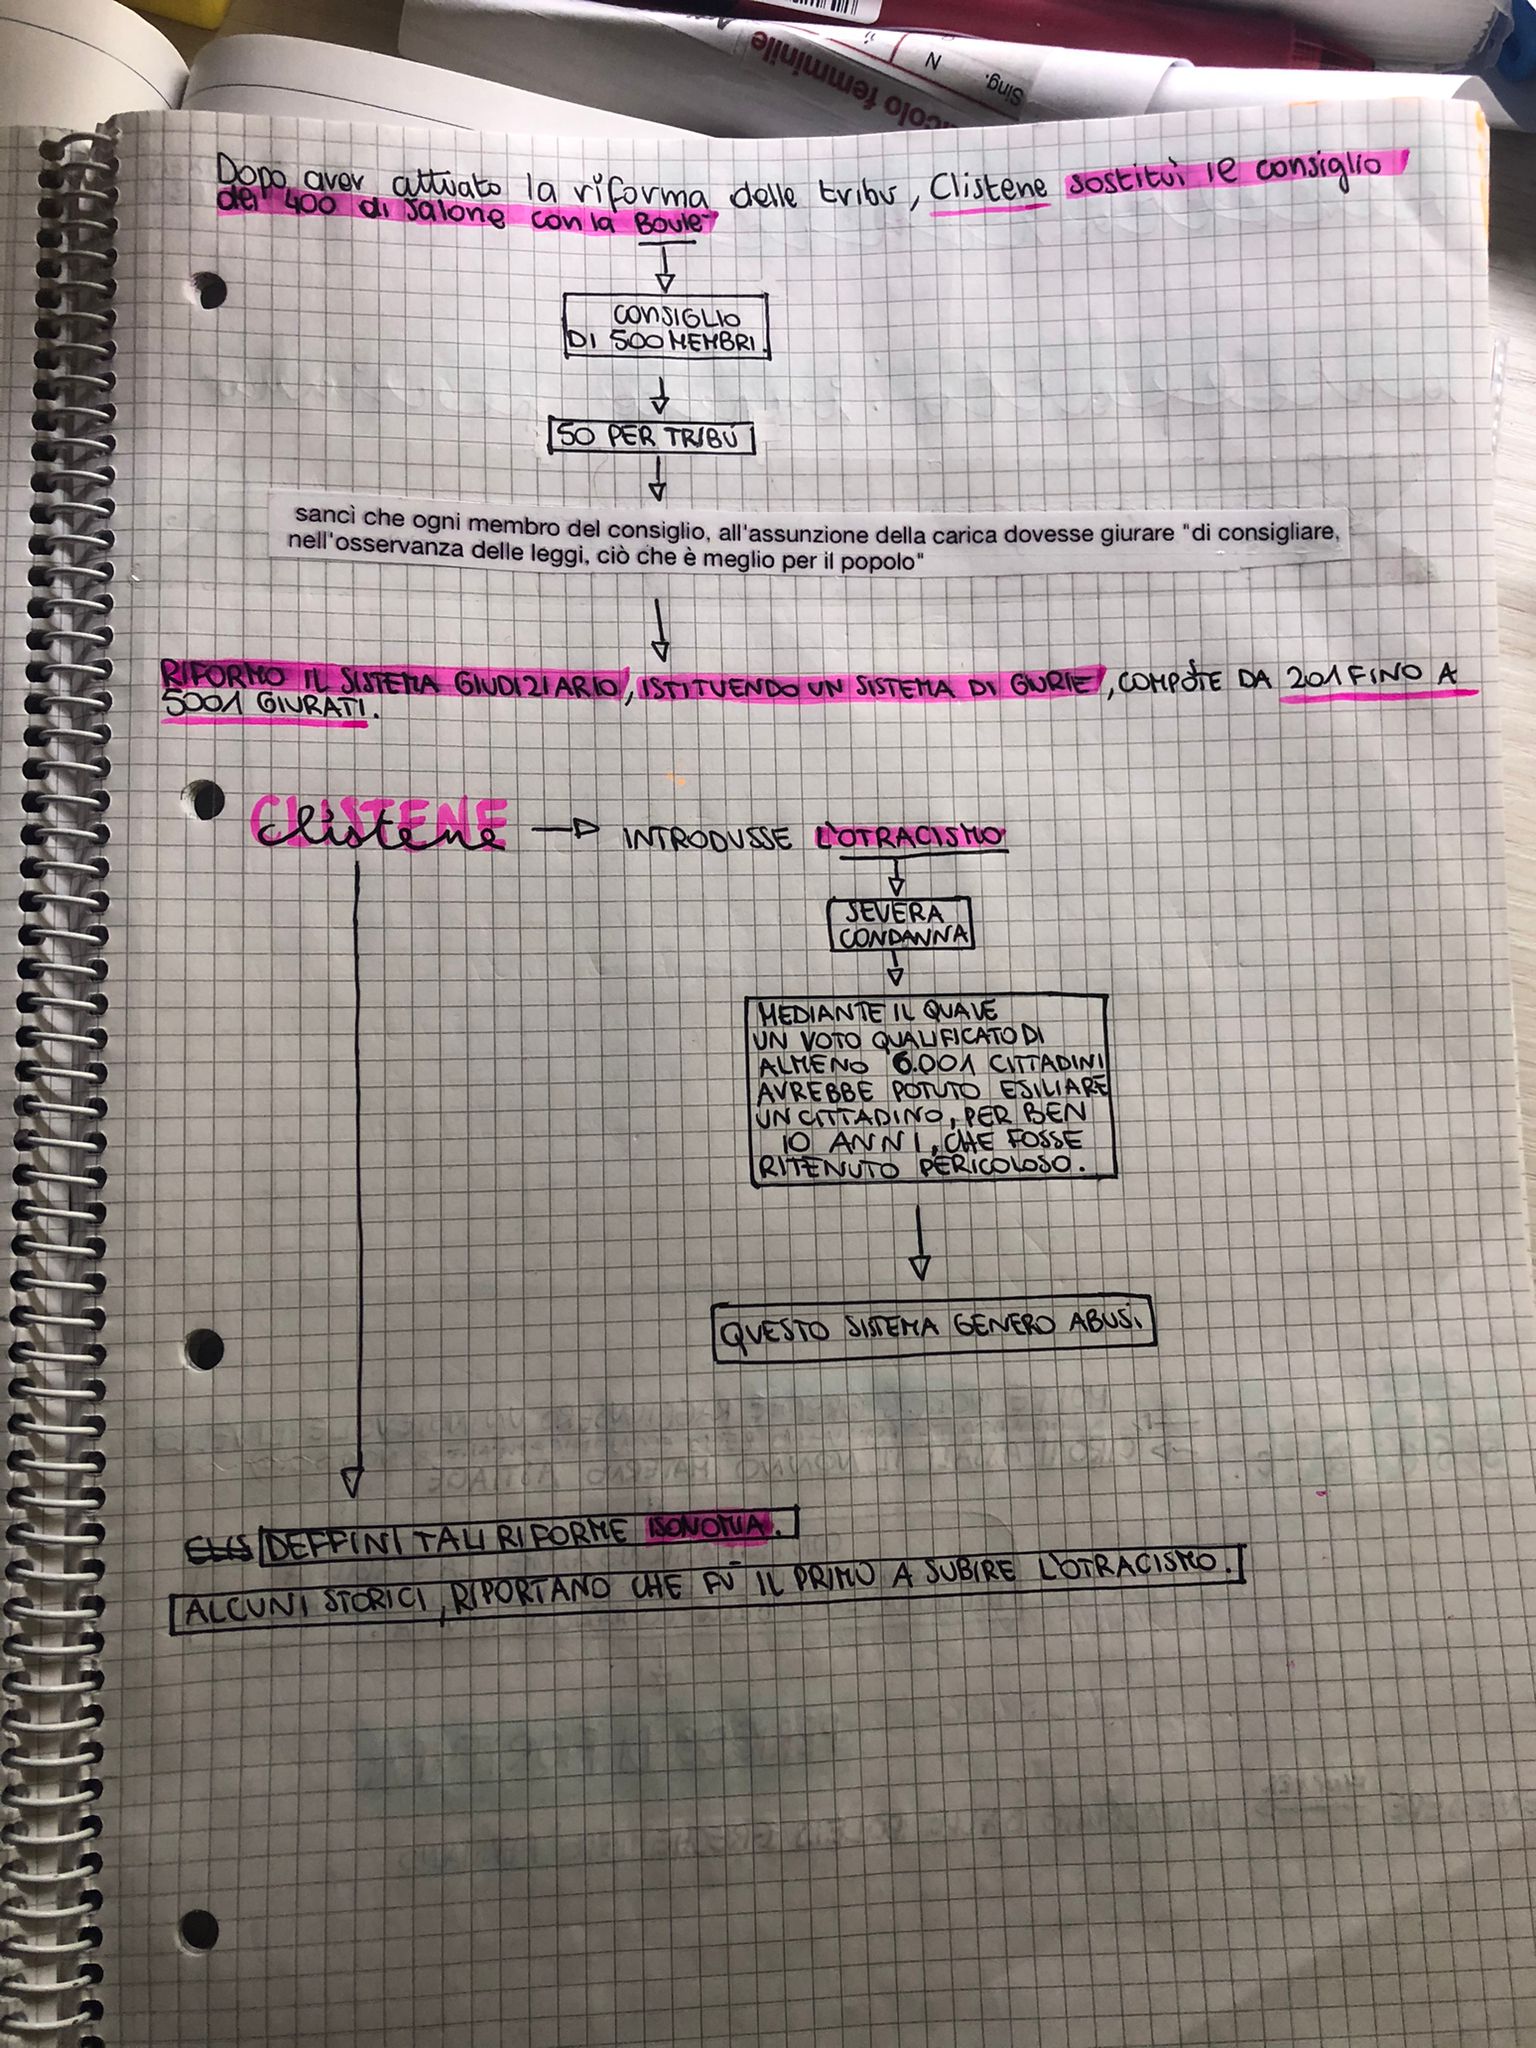 Sing.
N
icolo femminile
Dopo aver attuato la riforma delle tribù, Clistene sostituì le consiglio
dei 400 di Salone con la Boulè
CONSIGLIO
DI 500 MEMBRI.
50 PER TRIBÙ
sancì che ogni membro del consiglio, all'assunzione della carica dovesse giurare "di consigliare,
nell'osservanza delle leggi, ciò che è meglio per il popolo"
RIFORMO IL SISTEMA GIUDIZIARIO, ISTITUENDO UN SISTEMA DI GIURIE, COMPOSTE DA 201 FINO A
5001 GIURATI.
CLISTENE
Clistene
INTRODUSSE L'OTRACISMO
SEVERA
CONDANNA
MEDIANTE IL QUALE
UN VOTO QUALIFICATO DI
ALMENO 6.001 CITTADINI
AVREBBE POTUTO ESILIARE
UN CITTADINO, PER BEN
10 ANNI, CHE FOSSE
RITENUTO PERICOLOSO.
QUESTO SISTEMA GENERO ABUSI.
DEFFINI TALI RIFORME ISONOMIA.
ALCUNI STORICI, RIPORTANO CHE FÙ IL PRIMO A SUBIRE L'OTRACISMO.